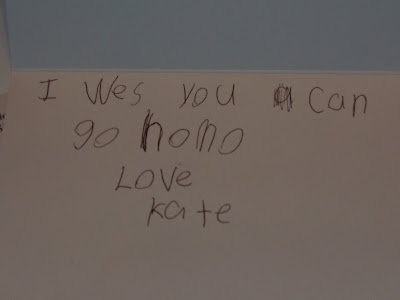 I wes you can
go hono
Love
kate